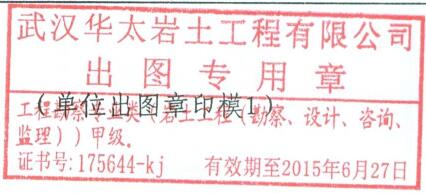 武汉华太岩土工程有限公司
出图专用章
(单位出图章印模1)
工程勘察专业类(岩土工程(勘察、设计、咨询、
监理))甲级。
证书号:175644-kj 有效期至2015年6月27日